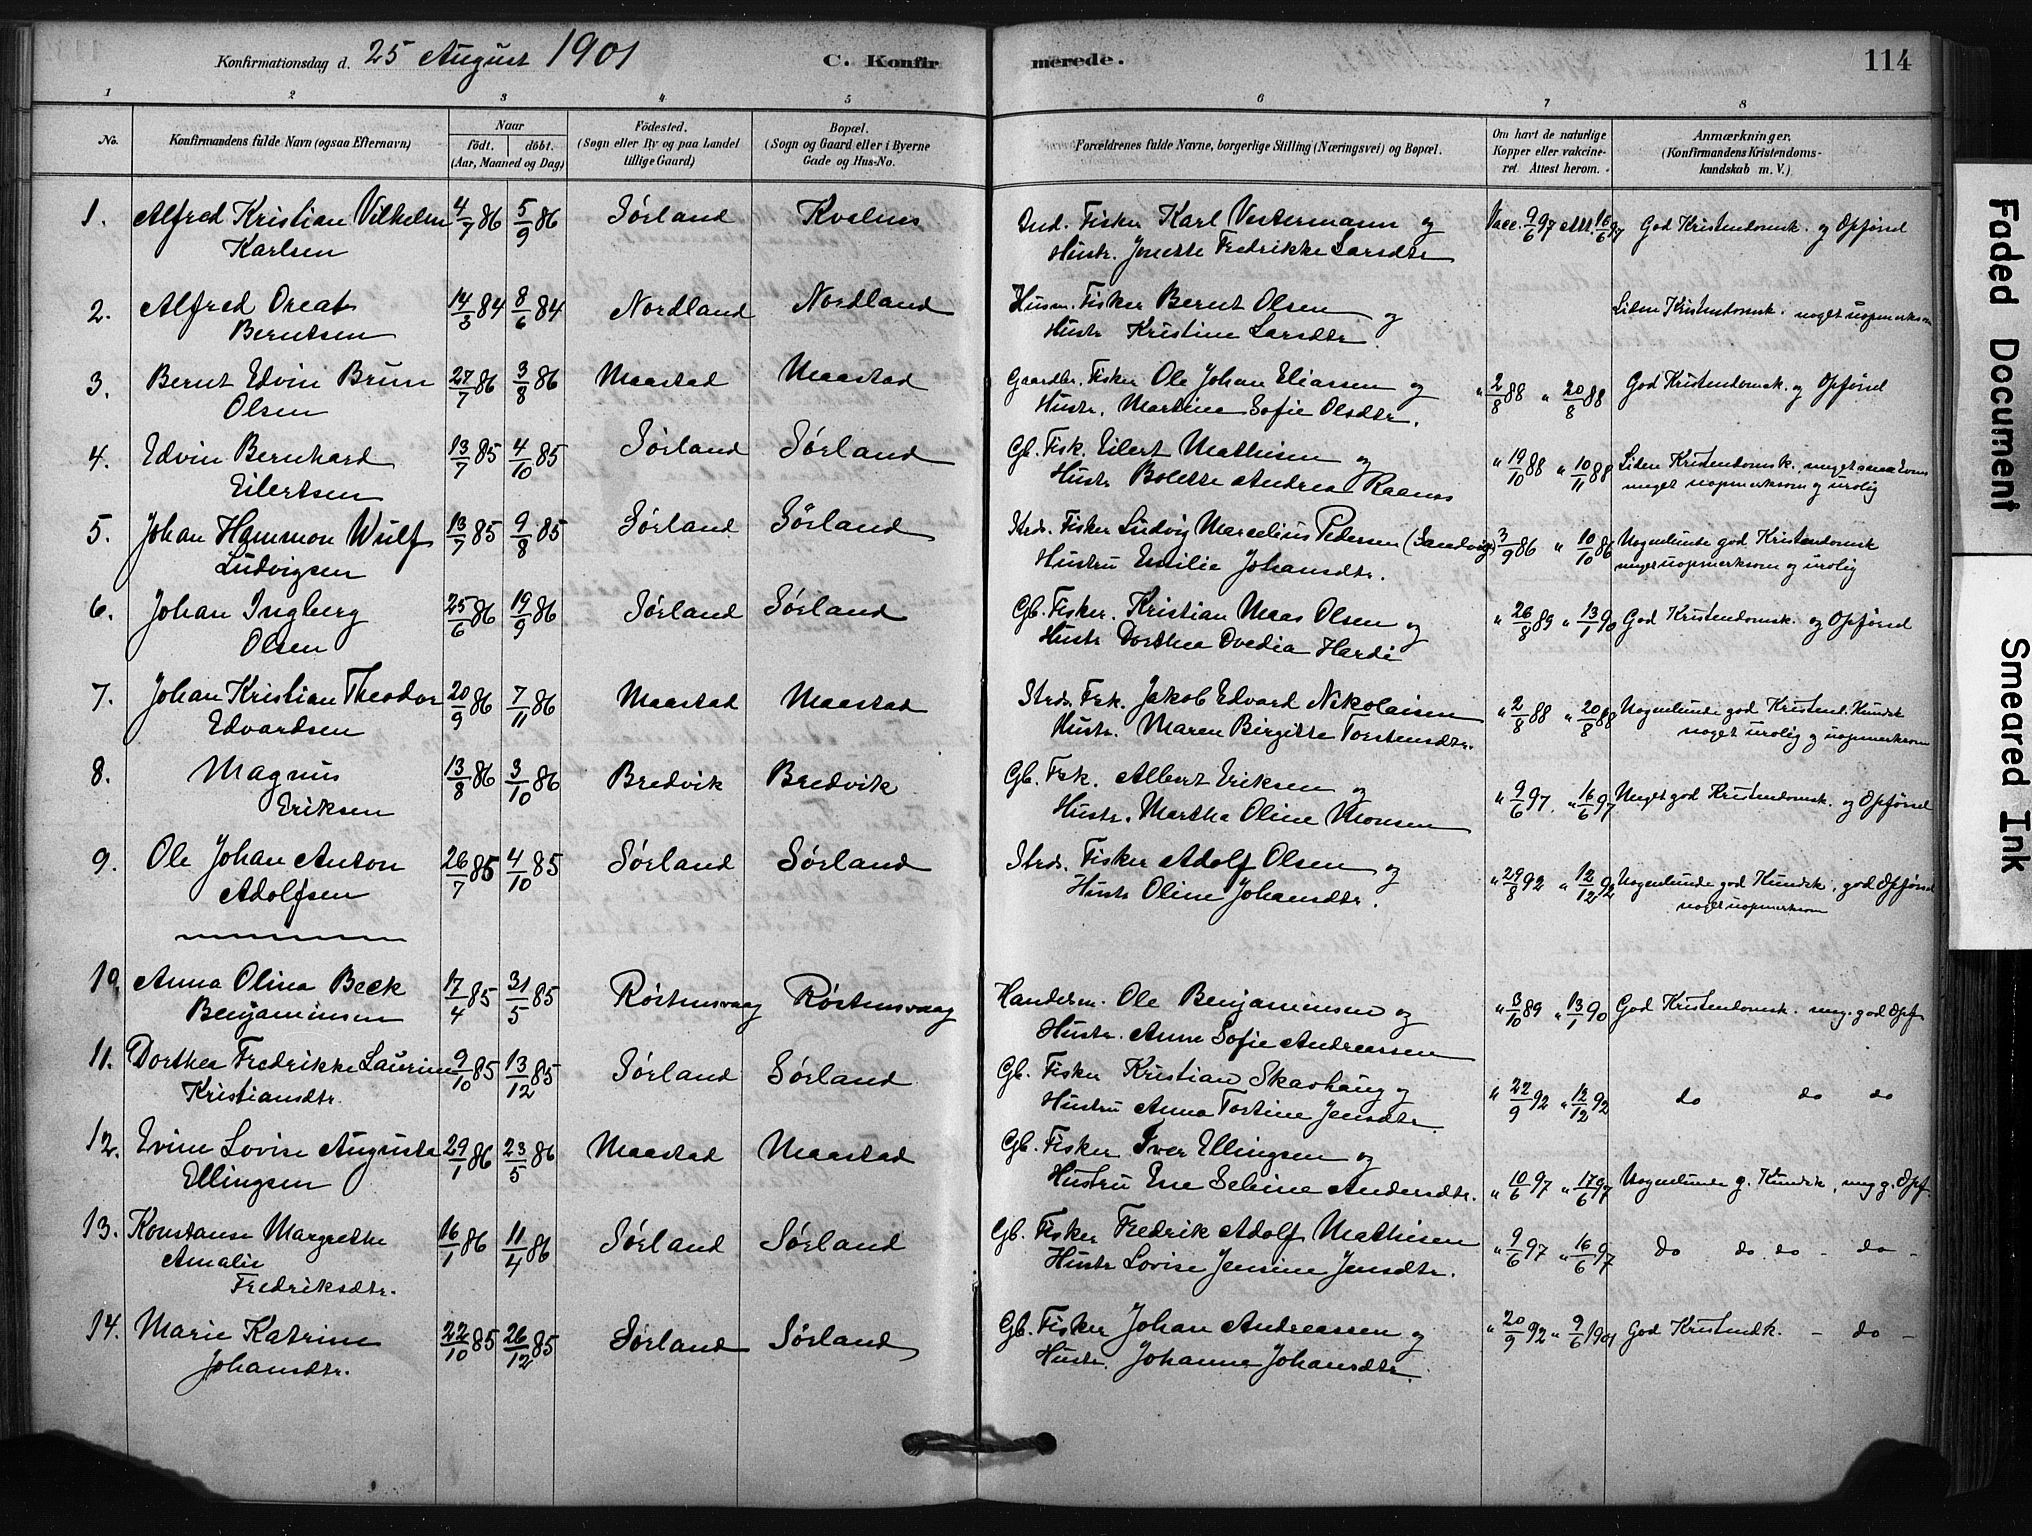 Konfirmationsdag d. 25 August 1901 C. Konfirmerede. 114
1 2 3 4 5 6 7 8
No. Konfirmandens fulde Navn (ogsaa Efternavn) Naar födt. döbt. (Aar, Maaned og Dag) Födested. (Sogn eller By og paa Landet tillige Gaard) Bopæl. (Sogn og Gaard eller i Byerne Gade og Hus-No. Forældrenes fulde Navne, borgerlige Stilling (Næringsvei) og Bopæl. Om havt de naturlige Kopper eller vakcineret. Attest herom. Anmærkninger. (Konfirmandens Kristendomskundskab m. V.)
1. Alfred Kristian Vilhelm 4/7 86 5/9 86 Sörland Kvalnes Ind. Fisker Karl Vestermann og Vacc. 9/6 97 Att. 16/6 97 God Kristendomsk. og Opförsel
Karlsen Hustr. Jenette Fredrikke Larsdtr
2. Alfred Oreat 14/3 84 8/6 84 Nordland Nordland Husm. Fisker Bernt Olsen og Liden Kristendomsk. noget uopmerksom
Berntsen Hustr Kristine Larsdtr
3. Bernt Edvin Brun 27/7 86 3/8 86 Maastad Maastad Gaardbr. Fisker Ole Johan Eliassen og " 2/8 88 " 20/8 88 God Kristendomsk. og Opförsel
Olsen Hustr. Martina Sofie Olsdtr.
4. Edvin Bernhard 13/7 85 4/10 85 Sörland Sörland Gb. Fisk. Eilert Mathisen og " 19/10 88 " 10/11 88 Liden Kristendomsk.
Eilertsen Hustr Bolette Andrea Raanes meget uopmerksom og urolig
5. Johan Hammon Wulf 13/7 85 9/8 85 Sörland Sörland Strds. Fisker Ludvig Marcelius Pedersen (Sandvig) 3/9 86 " 10/10 86 Nogenlunde god Kristendomsk
Ludvigsen Hustru Emilie Johansdtr. meget uopmerksom og urolig
6. Johan Ingberg 25/6 86 19/9 86 Sörland Sörland Gb. Fisker. Kristian Maas Olsen og " 26/8 89 " 13/1 90 God Kristendomsk. og Opförsel
Olsen Hustr Dorthea Ovedia Hardi
7. Johan Kristian Theodor 20/9 86 7/11 86 Maastad Maastad Strds. Fsk. Jakob Edvard Nikolaisen " 2/8 88 " 20/8 88 Nogenlunde god Kristend. Kundsk
Edvardsen Hustr. Maren Birgitte Torstensdtr. noget urolig og uopmerksom
8. Magnus 13/8 86 3/10 86 Bredvik Bredvik Gb. Fsk. Albert Eriksen og " 9/6 97. " 16/6 97 Meget god Kristendomsk. og Opförsel
Eriksen Hustr. Martha Oline Monsen
9. Ole Johan Anton 26/7 85 4/10 85 Sörland Sörland Strds. Fisker Adolf Olsen og " 29/8 92 " 12/12 92 Nogenlunde god Kundsk, god Opförsel
Adolfsen Hustr Oline Johansdtr. noget uopmerksom
10, Anna Olina Beck 17/4 85 31/5 85 Röstnesvaag Röstnesvaag Handelsm. Ole Benjaminsen og " 3/10 89 " 13/1 90 God Kristendomsk. meg. god Opf
Benjaminsen Hustr. Anne Sofie Andreassen
11. Dorthea Fredrikke Laurine 9/10 85 13/12 85 Sörland Sörland Gb. Fisker Kristian Skavhaug og " 22/9 92 " 12/12 92 do do do
Kristiansdtr. Hustru Anna Tostine Jensdtr.
12. Evine Lovise Augusta 29/1 86 23/5 86 Maastad Maastad Gb. Fisker Iver Ellingsen og " 10/6 97 " 17/6 97 Nogenlunde g. Kundsk, meg g. Opf.
Ellingsen Hustru Ene Seline Andersdtr.
13. Konstanse Margrethe 16/1 86 11/4 86 Sörland Sörland Gb. Fisker Fredrik Adolf Mathisen " 9/6 97 " 16/6 97 do do do - do -
Amalie Hustr Lovise Jensine Jensdtr.
Fredriksdtr.
14. Marie Katrine 22/10 85 26/12 85 Sörland Sörland Gb. Fisker Johan Andreassen og " 20/9 92 " 9/6 1901 God Kristendk. - do -
Johansdtr. Hustr. Johanna Johansdtr.
Faded Document
Smeared Ink